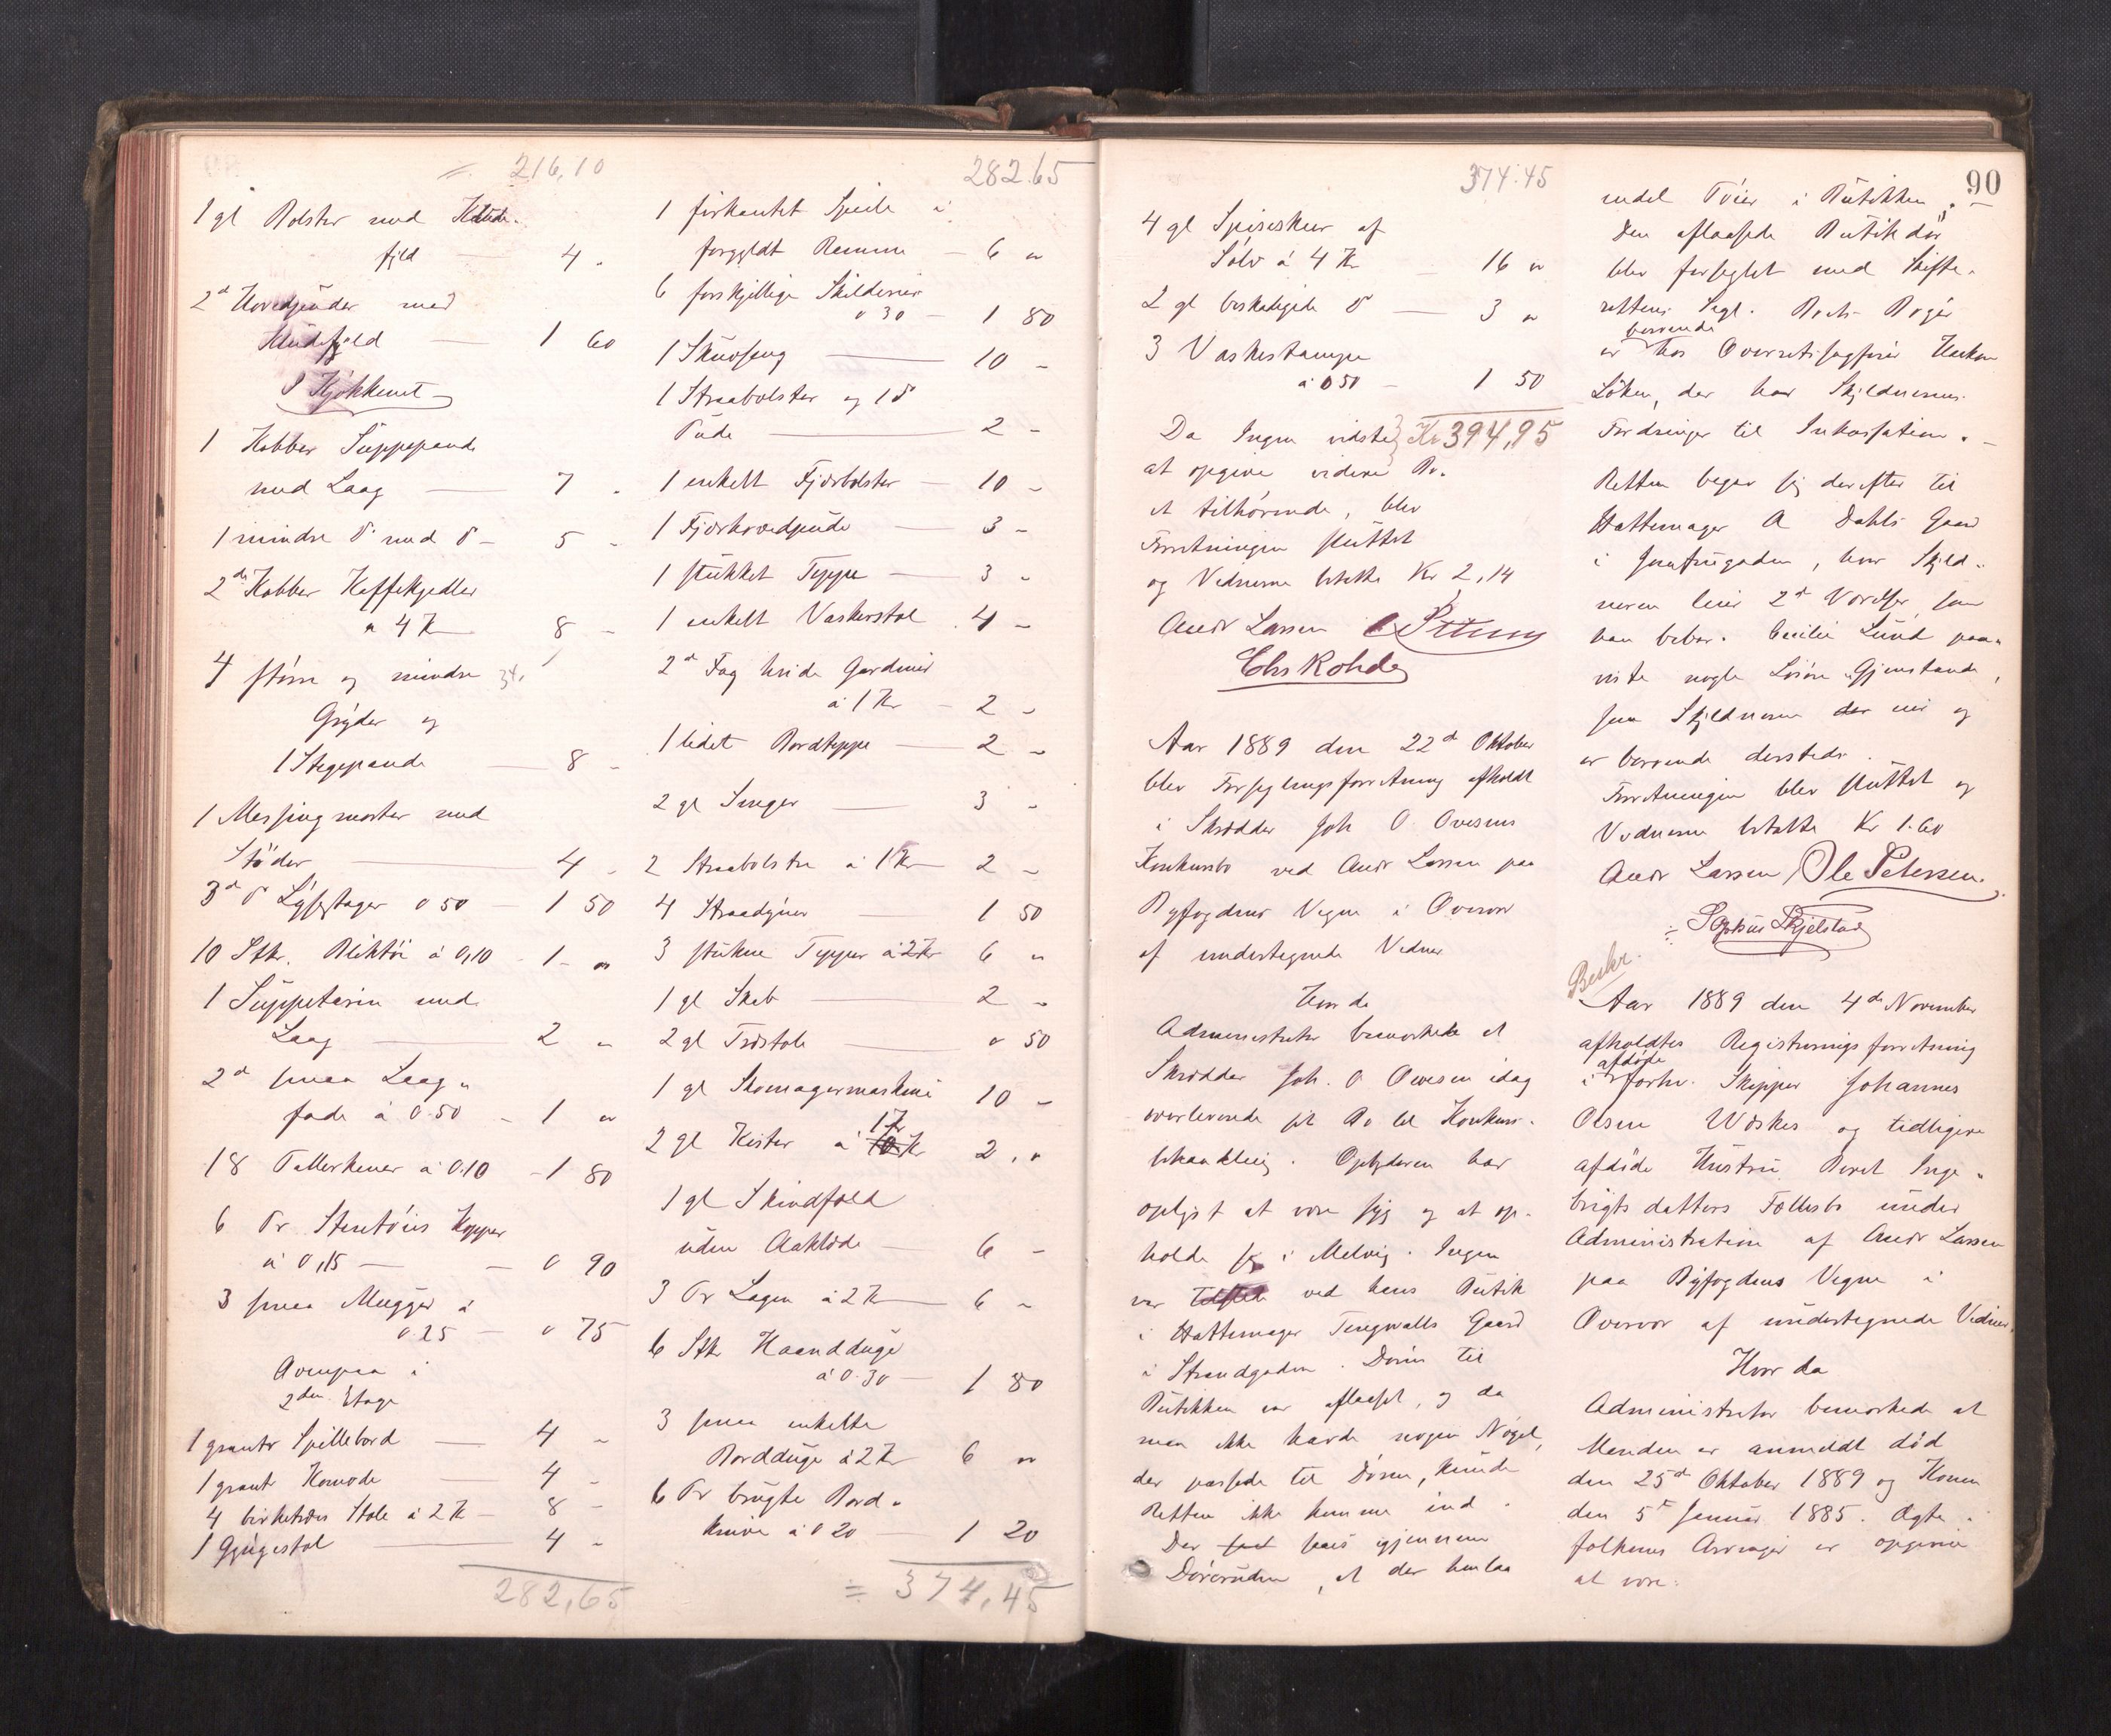 = 216,10
1 gl Bolster med Klude-
fyld — 4 "
2de Hovedpuder med
Kludefyld — 1 60
I Kjøkkenet
1 Kobber Suppepande
med Laag — 7 "
1 mindre do med do — 5 "
2de Kobber Kaffekjedler
à 4 Kr 8 "
4 større og mindre
Gryder og
1 Stegepande — 8 "
1 Messingmorter med
Støder — 4 "
3de do Lysestager 0 50 — 1 50
10 Stkr. Bliktøi à 0,10 — 1 - "
1 Suppeterin med
Laag — 2 "
2de smaa Laag-
fade à 0.50 — 1 "
18 Tallerkener à 0.10 — 1 80
6 Pr Stentøis Kopper
à 0,15 — 0 90
3 smaa Mugger à
0.25 — 0 75
Ovenpaa i
2den Etage
1 grantr Spillebord — 4 "
1 grantr Komode — 4 "
4 birketræs Stole à 2 Kr — 8 "
1 Gyngestol — 4 "
282,65
282.65
1 firkantet Speile i
forgyldt Ramme — 6 "
6 forskjellige Skilderier
0 30 — 1 80
1 Skuvseng — 10 "
1 Straabolster og 1 do
Pude — 2 "
1 enkelt Fjærbolster — 10 "
1 Fjærhovedpude — 3 "
1 stukket Teppe — 3 "
1 enkelt Vaskerstol 4 "
2de Fag hvide Gardiner
à 1 Kr — 2 "
1 lidet Bordteppe — 2 "
2 gl Senger — 3 "
2 Straabolstre à 1 Kr 2 "
4 Straadyner 1 50
3 stukne Tepper à 2 Kr 6 "
1 gl Skab — 2 "
2 gl Træstole — 0 50
1 gl Skomagermaskine 10 "
1 Kr
2 gl Kister à 10 Kr 2 "
1 gl Skindfeld
uden Aaklæde 6 "
3 Pr Lagen à 2 Kr 6 "
6 Stkr Haandduge
à 0.30 — 1 80
3 smaa enkelte
Bordduge à 2 Kr 6 "
6 Pr brugte Bord-
knive à 0 20 1 20
= 374,45
374.45
4 gl Spiseskeer af
Sølv à 4 Kr 16 "
2 gl beskadigede do — 3 "
3 Vaskestamper
à 0 50 — 1 50
Da Ingen vidste Kr 394,95
at opgive videre Bo-
et tilhørende, blev
Forretningen sluttet
og Vidnerne betalte Kr 2,14
Andr Larsen
Chr Rohde
Aar 1889 den 22de Oktober
blev Forseglingsforretning afholdt
i Skrædder Joh O Ovesens
Konkursbo ved Andr Larsen paa
Byfogdens Vegne i Overvær
af undertegnede Vidner
Hvorda
Administrator bemærkede at
Skrædder Joh. O Ovesen idag
overleverede sit Bo til Konkurs-
behandling. Opbyderen har
oplyst at være syg og at op-
holde sig i Melvig. Ingen
var tilstede ved hans Butik
i Hattemager Tengwalls Gaard
i Strandgaden. Døren til
Butikken var aflaaset, og da
man ikke havde nogen Nøgel,
der passede til Døren, kunde
Retten ikke komme ind.
Der saaes igjennem
Dørruden, at der henlaa
90
endel Tøier i Butikken.
Den aflaasede Butikdør
blev forseglet med Skifte-
rettens Segl. Boets Bøger
beroende
er hos Overretssagfører Haakon
Löken, der har Skyldnerens
Fordringer til Inkassation. —
Retten begav sig derefter til
Hattemager A Dahls Gaard
i Jomfrugaden, hvor Skyld-
neren leier 2de Værelser som
han bebor. Cecilie Lund paa-
viste nogle Løsøre Gjenstande,
som Skyldneren der eier og
er beroende dersteds.
Forretningen blev sluttet og
Vidnerne betalte Kr 1.60
Andr Larsen Ole Petersen.
Sophus Skjelstad
Beskr.
Aar 1889 den 4de November
afholdtes Registreringsforretning
afdøde
i forhv. Skipper Johannes
Olsen Wæskes og tidligere
afdøde Hustru Beret Inge-
brigtsdatters Fællesbo under
Administration af Andr Larsen
paa Byfogdens Vegne i
Overvær af undertegnede Vidner.
Hvor da
Administrator bemærkede at
Manden er anmeldt død
den 25de Oktober 1889 og Konen
den 5te Januar 1885. Ægte-
folkenes Arvinger er opgivne
at være: